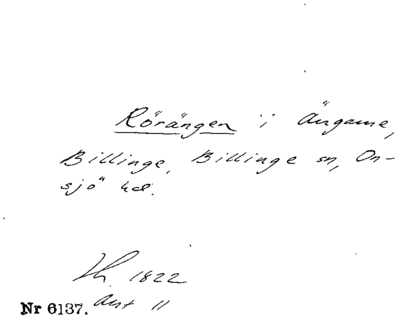 Rörängen i Ängarne,
Billinge, Billinge sn, On-
sjö hd.
Lh. 1822
Nr 6137. Akt 11